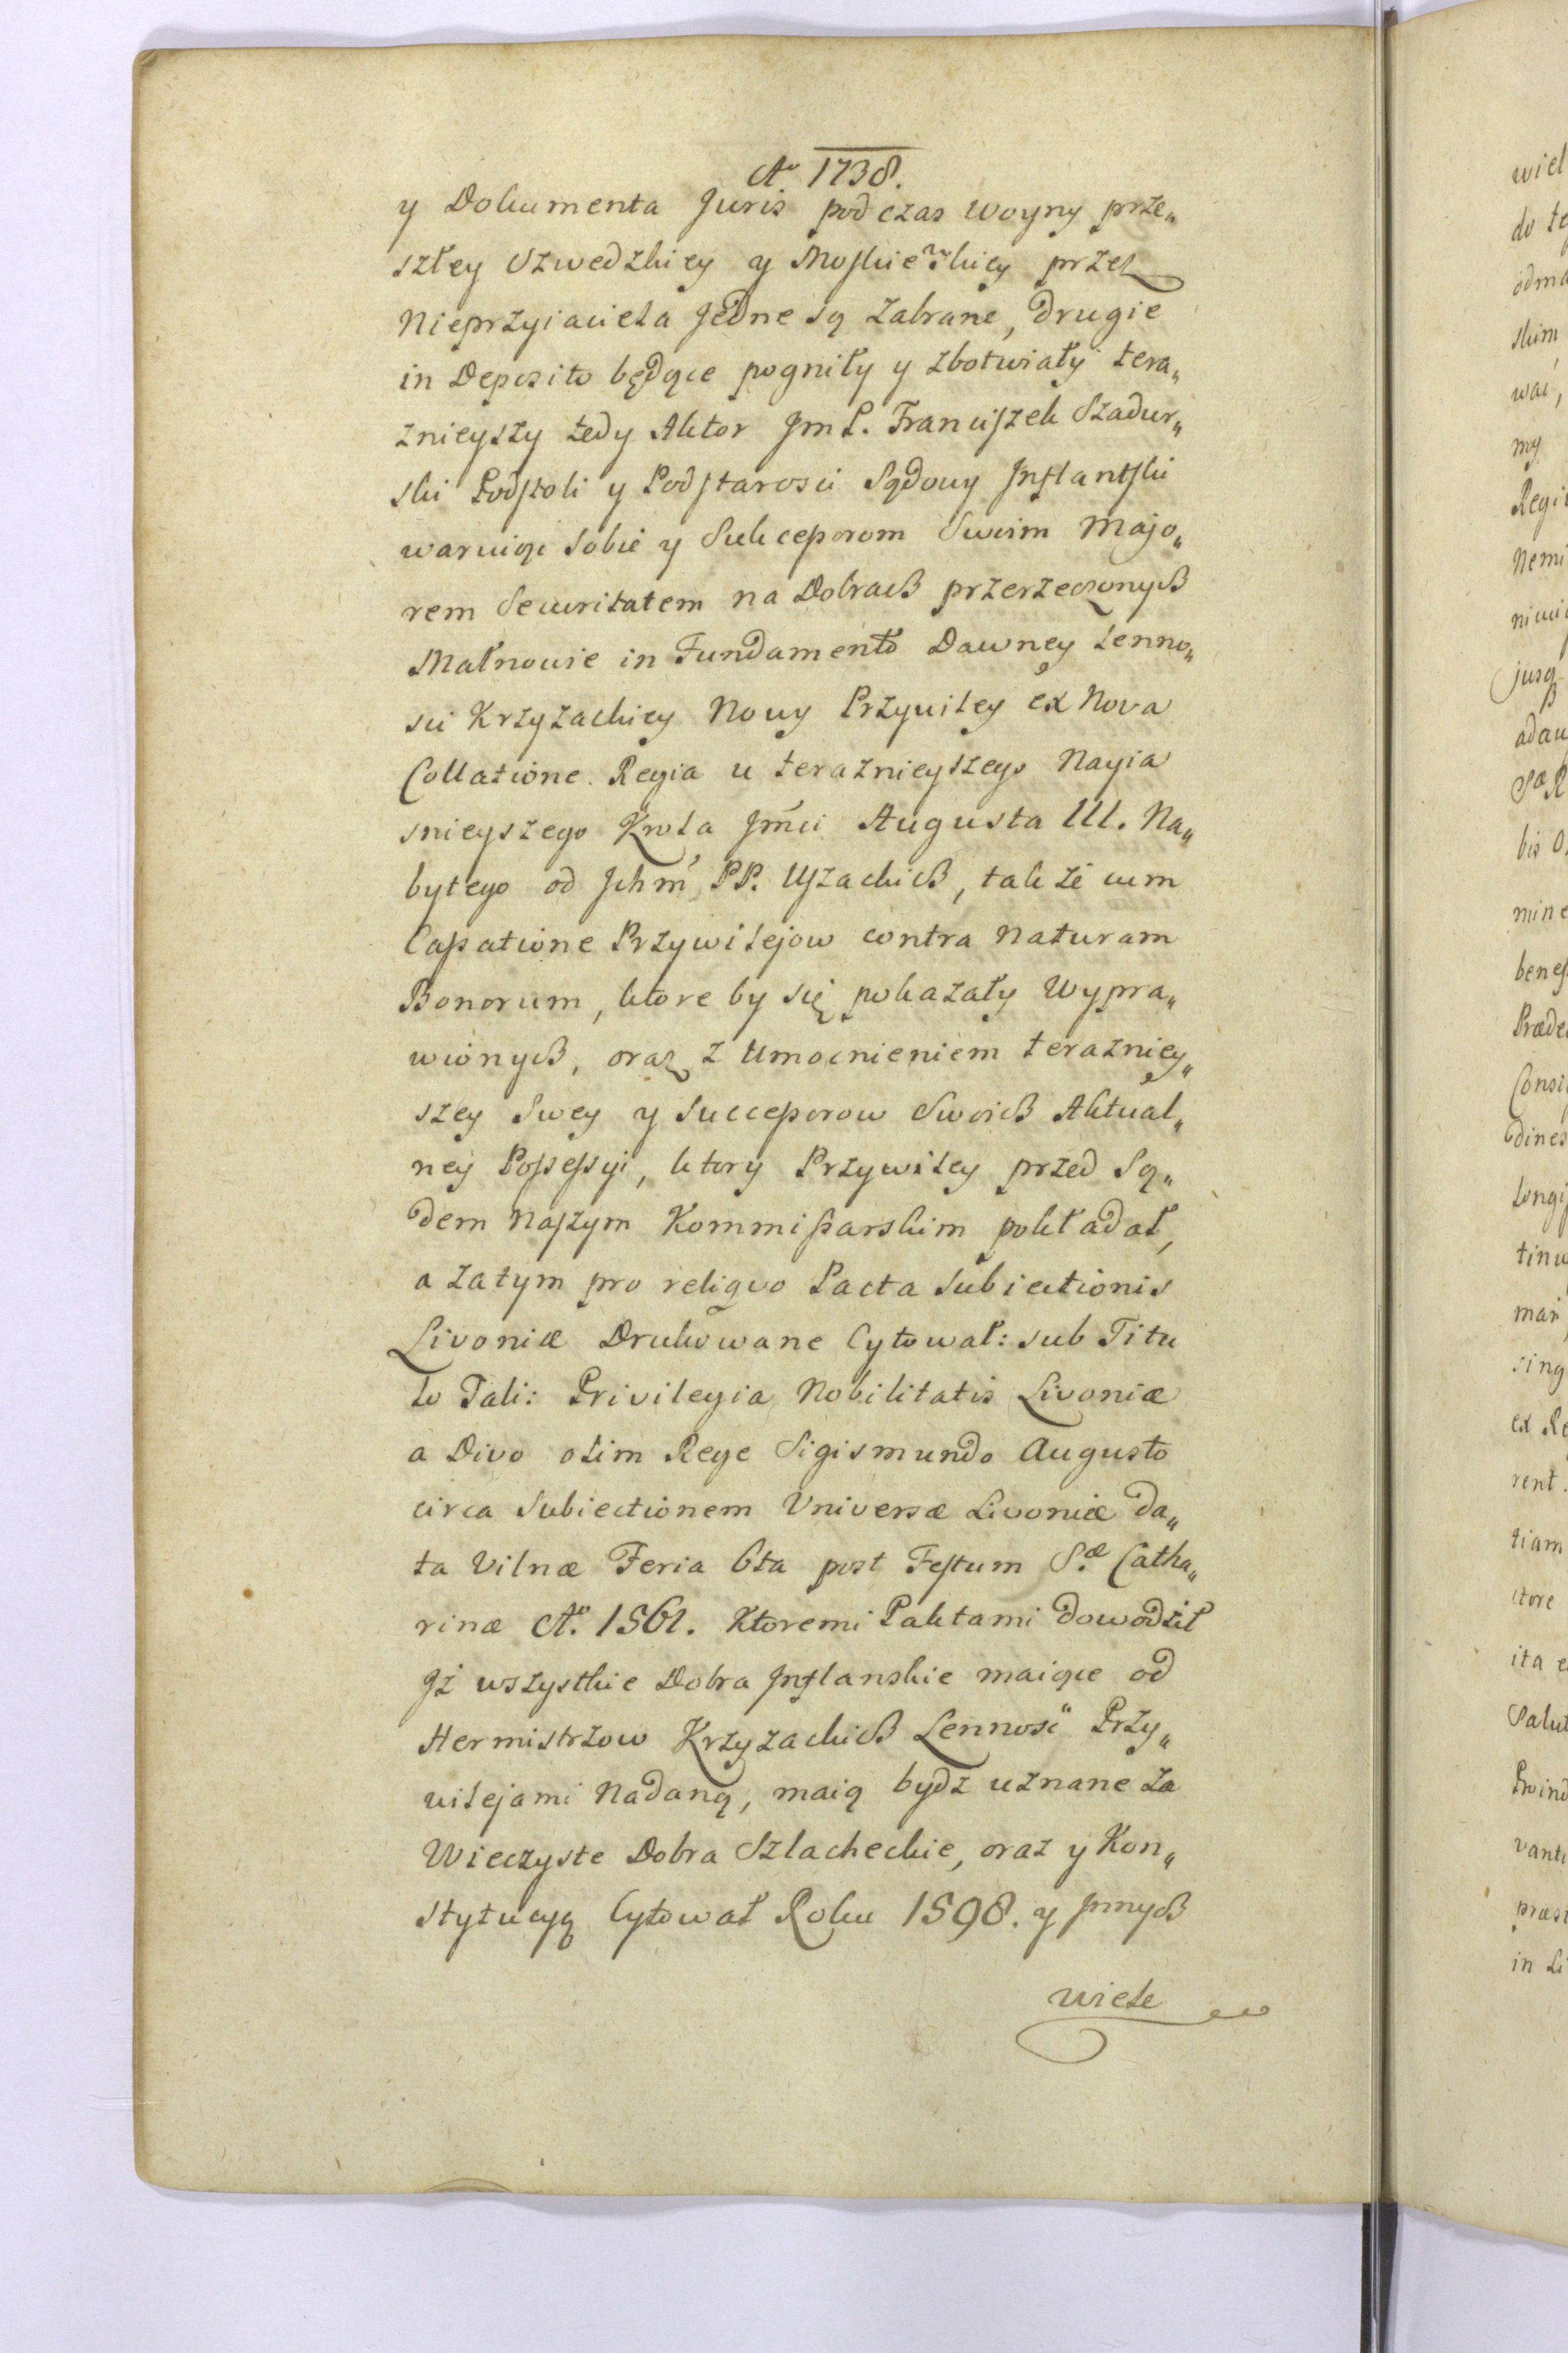 Aº 1738.
y Dokumenta Juris podczas woyny prze„
szłey Szwedzkiey y Moskiewskiey przez
Nieprzyiaciela Jedne są zabrane, drugie
in Deposito będące pogniły y zbotwiały tera„
znieyszy tedy Aktor JmP. Franciszek Szadur„
ski Podstoli y Podstarosci Sądowy Inflantski
waruiąc sobie y Sukcessorom Swoim Majo„
rem Securitatem na Dobrach przerzeczonych
Małnowie in Fundamento Dawney Lenno„
sci Krzyzackiey Nowy Przywiley ex Nova
Collatione Regia u teraznieyszego Nayia
snieyszego Krola Jmci Augusta III. Na„
bytego od Ichm PP. Uszackich, tak że cum
Cassatione Przywilejow contra Naturam
Bonorum, ktore by się pokazały Wypra„
wionych, oraz z Umocnieniem terazniey„
szey Swey y Successorow Swoich Aktual„
ney Possessyi, ktory Przywiley przed Są„
dem Naszym Kommissarskim pokładał,
a zatym pro reliquo Pacta Subiectionis
Livoniæ Drukowane Cytował: sub Titu
lo Tali: Privilegia Nobilitatis Livoniæ
a Divo olim Rege Sigismundo Augusto
circa Subiectionem Universæ Livoniæ da„
ta Vilnæ Feria 6ta post Festum S.æ Catha„
rinæ Aº 1561. Ktoremi Paktami dowodził
Jż wszystkie Dobra Inflanskie maiące od
Hermistrzow Krzyzackich Lenność Przy„
wilejami Nadaną, maią bydz uznane za
Wieczyste Dobra Szlacheckie, oraz y Kon„
stytucyą Cytował Roku 1598. y Jnnych
wiele
wiel
do te
odma
skim
wac,
my
Regi
Nemi
niewi
jusq
adau
Sæ R
bis O
mine
benef
Præde
Consi
dines
Longi
tinu
man
sing
ex Re
rent.
tiam
ctore
ita e
Salut
Provind
vant
præs
in Li